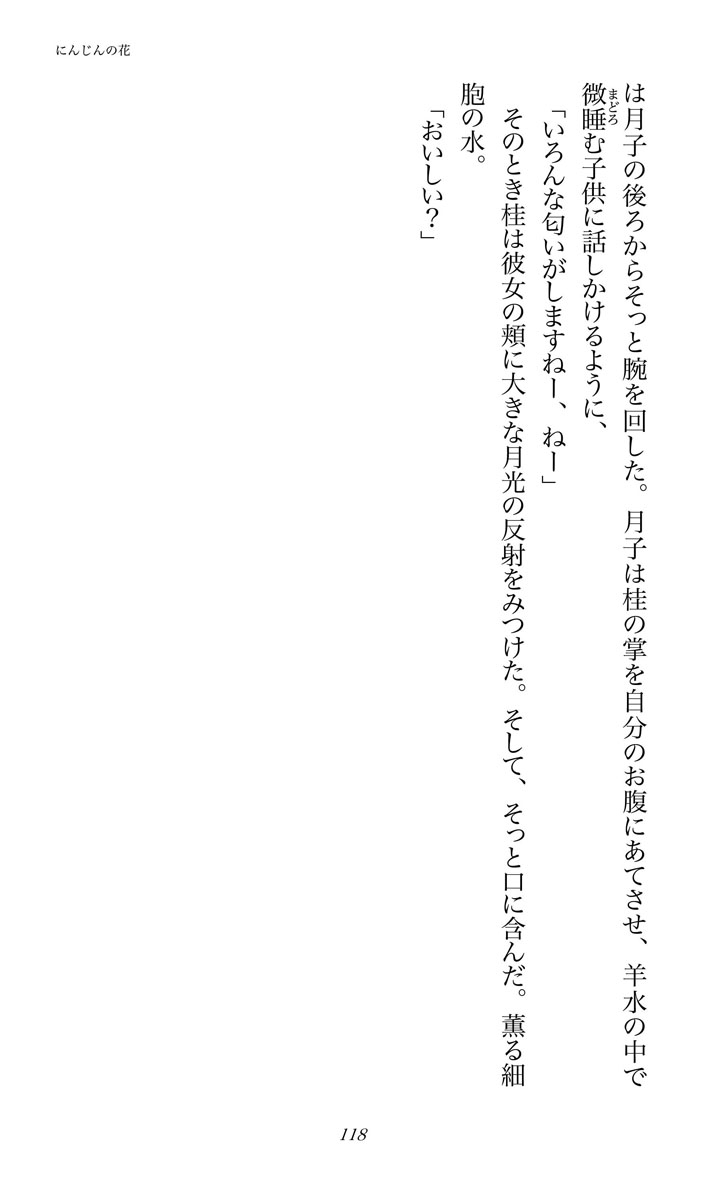 にんじんの花
は月子の後ろからそっと腕を回した。月子は桂の掌を自分のお腹にあてさせ、羊水の中で
微睡む子供に話しかけるように、
まどろ
「いろんな匂いがしますねー、ねー」
そのとき桂は彼女の頬に大きな月光の反射をみつけた。そして、そっと口に含んだ。薫る細
胞の水。
「おいしい？」
118